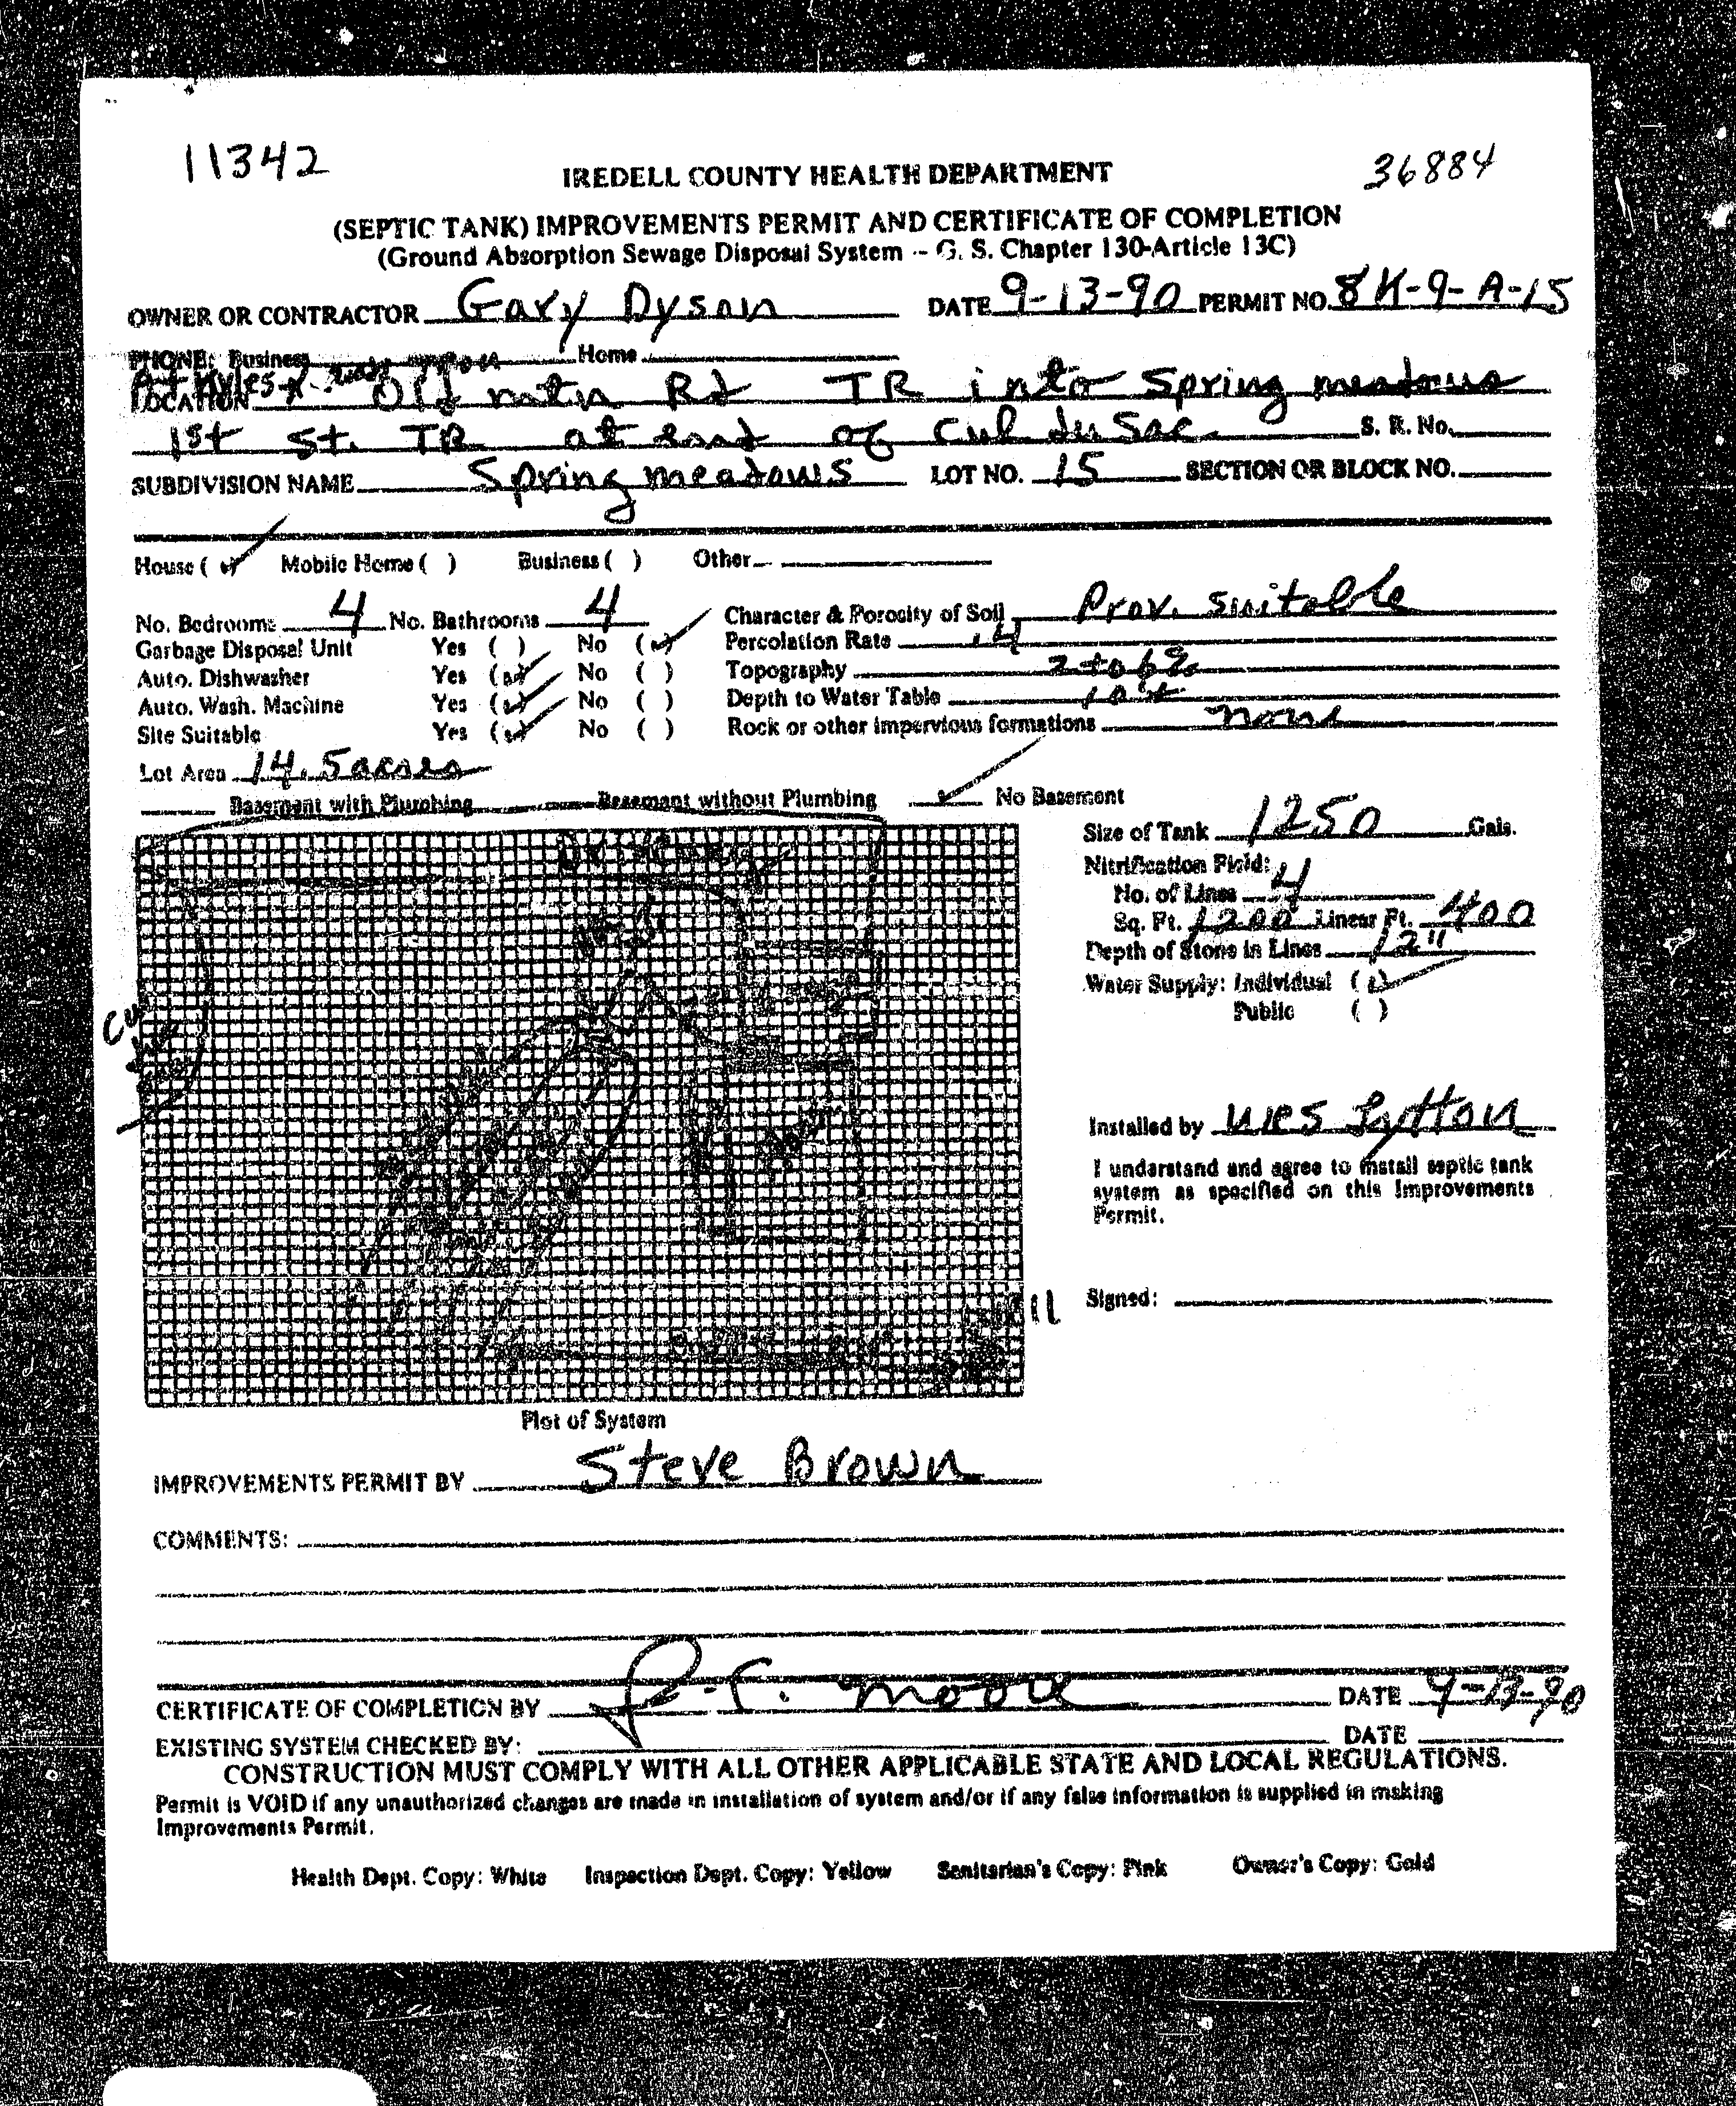 11342
36884
IREDELL COUNTY HEALTH DEPARTMENT
(SEPTIC TANK) IMPROVEMENTS PERMIT AND CERTIFICATE OF COMPLETION
(Ground Absorption Sewage Disposal System -- G. S. Chapter 130-Article 13C)
OWNER OR CONTRACTOR Gary Dyson DATE 9-13-90 PERMIT NO. 8K-9-A-15
PHONE: Business Home
LOCATION Old mtn Rd TR into Spring meadows
1st St. TR at end of Cul du Sac S. R. No.
SUBDIVISION NAME Spring meadows LOT NO. 15 SECTION OR BLOCK NO.
House (✓) Mobile Home ( ) Business ( ) Other
No. Bedrooms 4 No. Bathrooms 4 Character & Porosity of Soil Prov. suitable
Garbage Disposal Unit Yes ( ) No (✓) Percolation Rate .4
Auto. Dishwasher Yes (✓) No ( ) Topography 2 to 6%
Auto. Wash. Machine Yes (✓) No ( ) Depth to Water Table
Site Suitable Yes (✓) No ( ) Rock or other impervious formations none
Lot Area 14.5 acres
Basement with Plumbing Basement without Plumbing ✓ No Basement
Size of Tank 1250 Gals.
Nitrification Field:
No. of Lines 4
Sq. Ft. 1200 Linear Ft. 400
Depth of Stone in Lines 12"
Water Supply: Individual (✓)
Public ( )
Installed by Wes Lytton
I understand and agree to install septic tank
system as specified on this Improvements
Permit.
Signed:
Plot of System
IMPROVEMENTS PERMIT BY Steve Brown
COMMENTS:
CERTIFICATE OF COMPLETION BY Moore DATE 9-13-90
EXISTING SYSTEM CHECKED BY: DATE
CONSTRUCTION MUST COMPLY WITH ALL OTHER APPLICABLE STATE AND LOCAL REGULATIONS.
Permit is VOID if any unauthorized changes are made in installation of system and/or if any false information is supplied in making
Improvements Permit.
Health Dept. Copy: White Inspection Dept. Copy: Yellow Sanitarian's Copy: Pink Owner's Copy: Gold